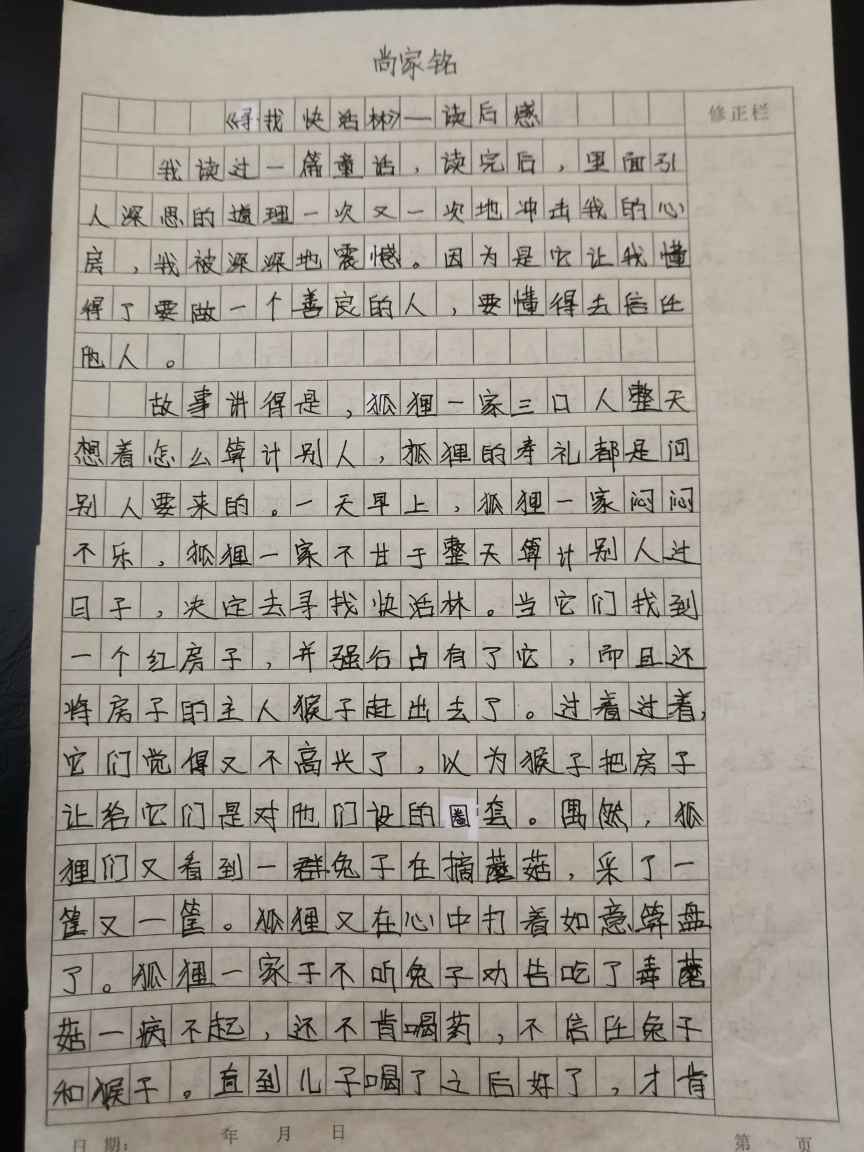 尚家铭
《寻找快活林》—读后感
修正栏
我读过一篇童话，读完后，里面引
人深思的道理一次又一次地冲击我的心
房，我被深深地震憾。因为是它让我懂
得了要做一个善良的人，要懂得去信任
他人。
故事讲得是，狐狸一家三口人整天
想着怎么算计别人，狐狸的寿礼都是问
别人要来的。一天早上，狐狸一家闷闷
不乐，狐狸一家不甘于整天算计别人过
日子，决定去寻找快活林。当它们找到
一个红房子，并强行占有了它，而且还
将房子的主人猴子赶出去了。过着过着，
它们觉得又不高兴了，以为猴子把房子
让给它们是对他们设的圈套。偶然，狐
狸们又看到一群兔子在摘蘑菇，采了一
筐又一筐。狐狸又在心中打着如意算盘
了。狐狸一家于不听兔子劝告吃了毒蘑
菇一病不起，还不肯喝药，不信任兔子
和猴子。直到儿子喝了之后好了，才肯
日期： 年 月 日 第 页